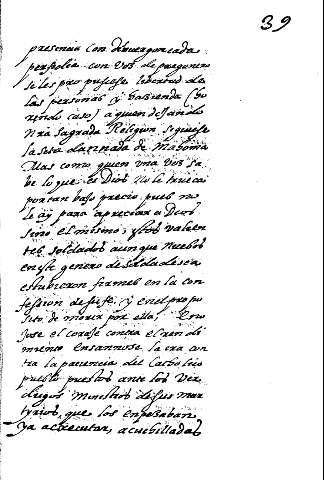 39
presencia con desvergonçada
perfidia con voz de pregonero
se les propusiese libertad de
las personas y hazienda (ho
rrendo caso) a quien dejando
Nra Sagrada Religion siguiese
la seta de Mahoma
Mas como quien una vez sa
be lo que es Dios no le trueca
por tan baxo precio pues no
le ay para apreciar a Dios
sino el mismo; estos valien
tes soldados aunque nuebos
en este genero de soldadesca
estubieron firmes en la con
fesion de su fe, y en el propo
sito de morir por ella. Eno
jose el corage contra el rendi
miento ensañose la era con
tra la paciencia del Catholico
pueblo puestos ante los ver
dugos Ministros de sus mar
tyrios, que los enpezaban
ya a executar, acuchillados